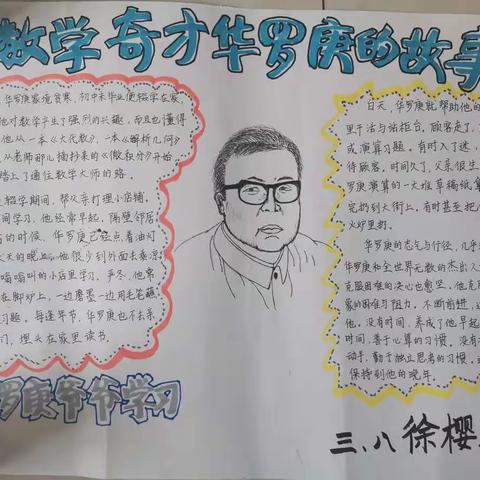 数学奇才华罗庚的故事
华罗庚家境贫寒,初中未毕业便辍学在家
他对数学产生了强烈的兴趣,而且也懂得
他从一本《大代数》,一本《解析几何》
从老师那儿摘抄来的《微积分》开始
踏上了通往数学大师的路。
辍学期间,帮父亲打理小店铺。
间学习,他经常早起,隔壁邻居
的时候,华罗庚已经点着油灯
天的晚上,他很少到外面去乘凉
嗡嗡叫的小店里学习。严冬,他常
在脚炉上,一边磨墨一边用毛笔蘸
习题。每逢年节,华罗庚也不去亲
门,埋头在家里读书。
罗庚爷爷学习
白天,华罗庚就帮助他的
里干活与站柜台。顾客走了,
或演算习题。有时入了迷,
待顾客。时间久了,父亲很生
罗庚演算的一大堆草稿纸
完扔到大街上。有时甚至把
火炉里扔。
华罗庚的志气与行径,几乎
华罗庚和全世界无数的杰出人
克服困难的决心也愈坚。他克
家的困难与阻力。不断前进,
他。没有时间,养成了他早起
时间,善于心算的习惯。没有
动手,勤于独立思考的习惯。
保持到他的晚年。
三、八 徐樱